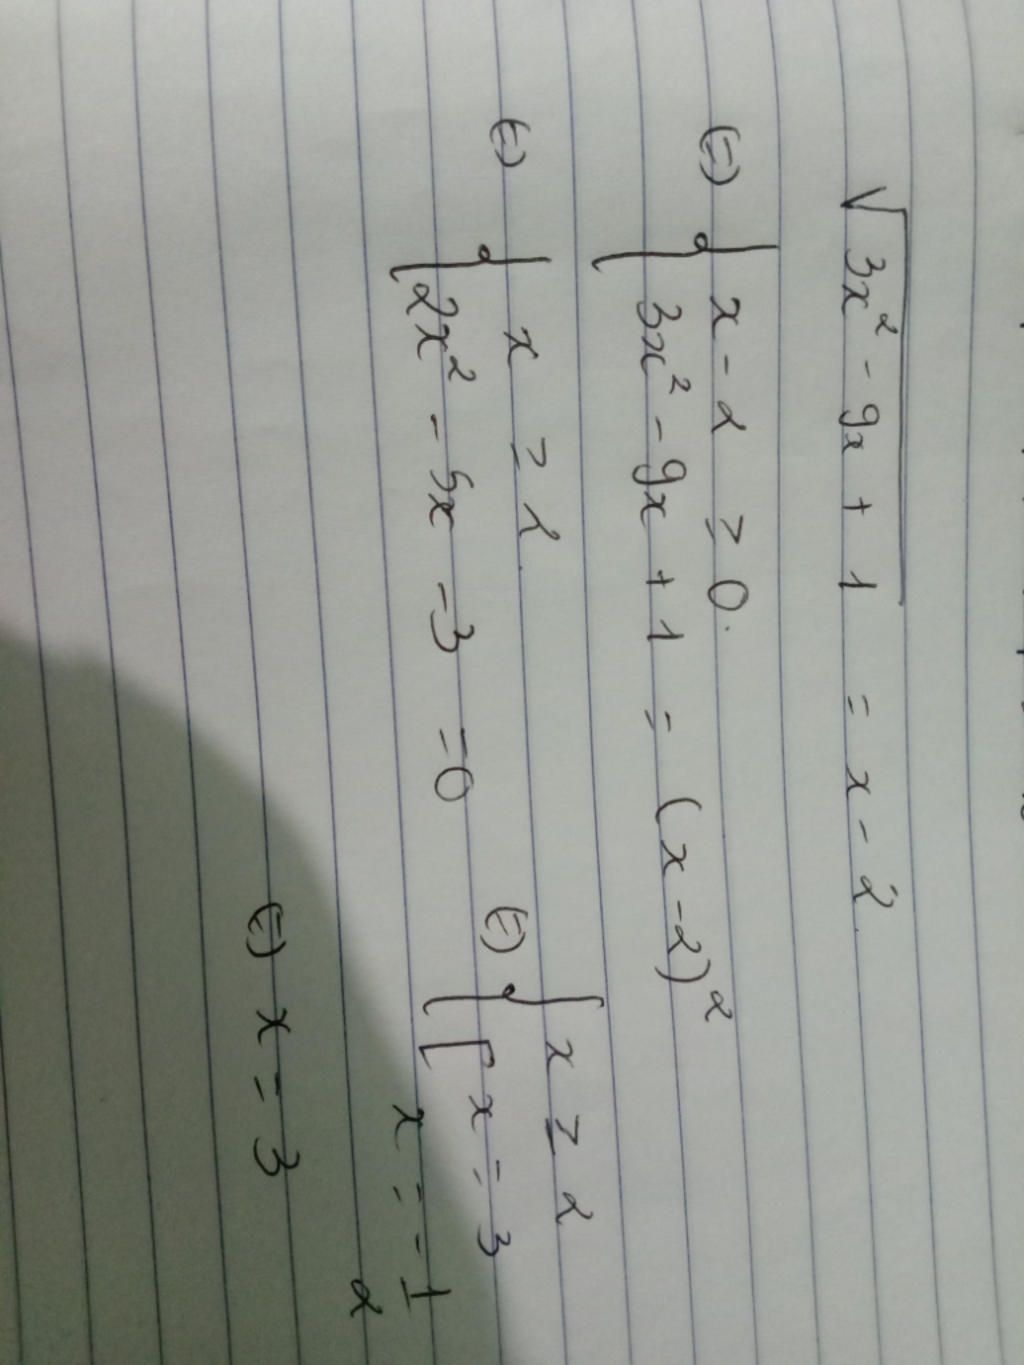 √(3x² - 9x + 1) = x - 2.
(=) { x - 2 ≥ 0.
3x² - 9x + 1 = (x - 2)²
(=) { x ≥ 2.
2x² - 5x - 3 = 0
(=) { x ≥ 2
[ x = 3
x = -1/2
(=) x = 3